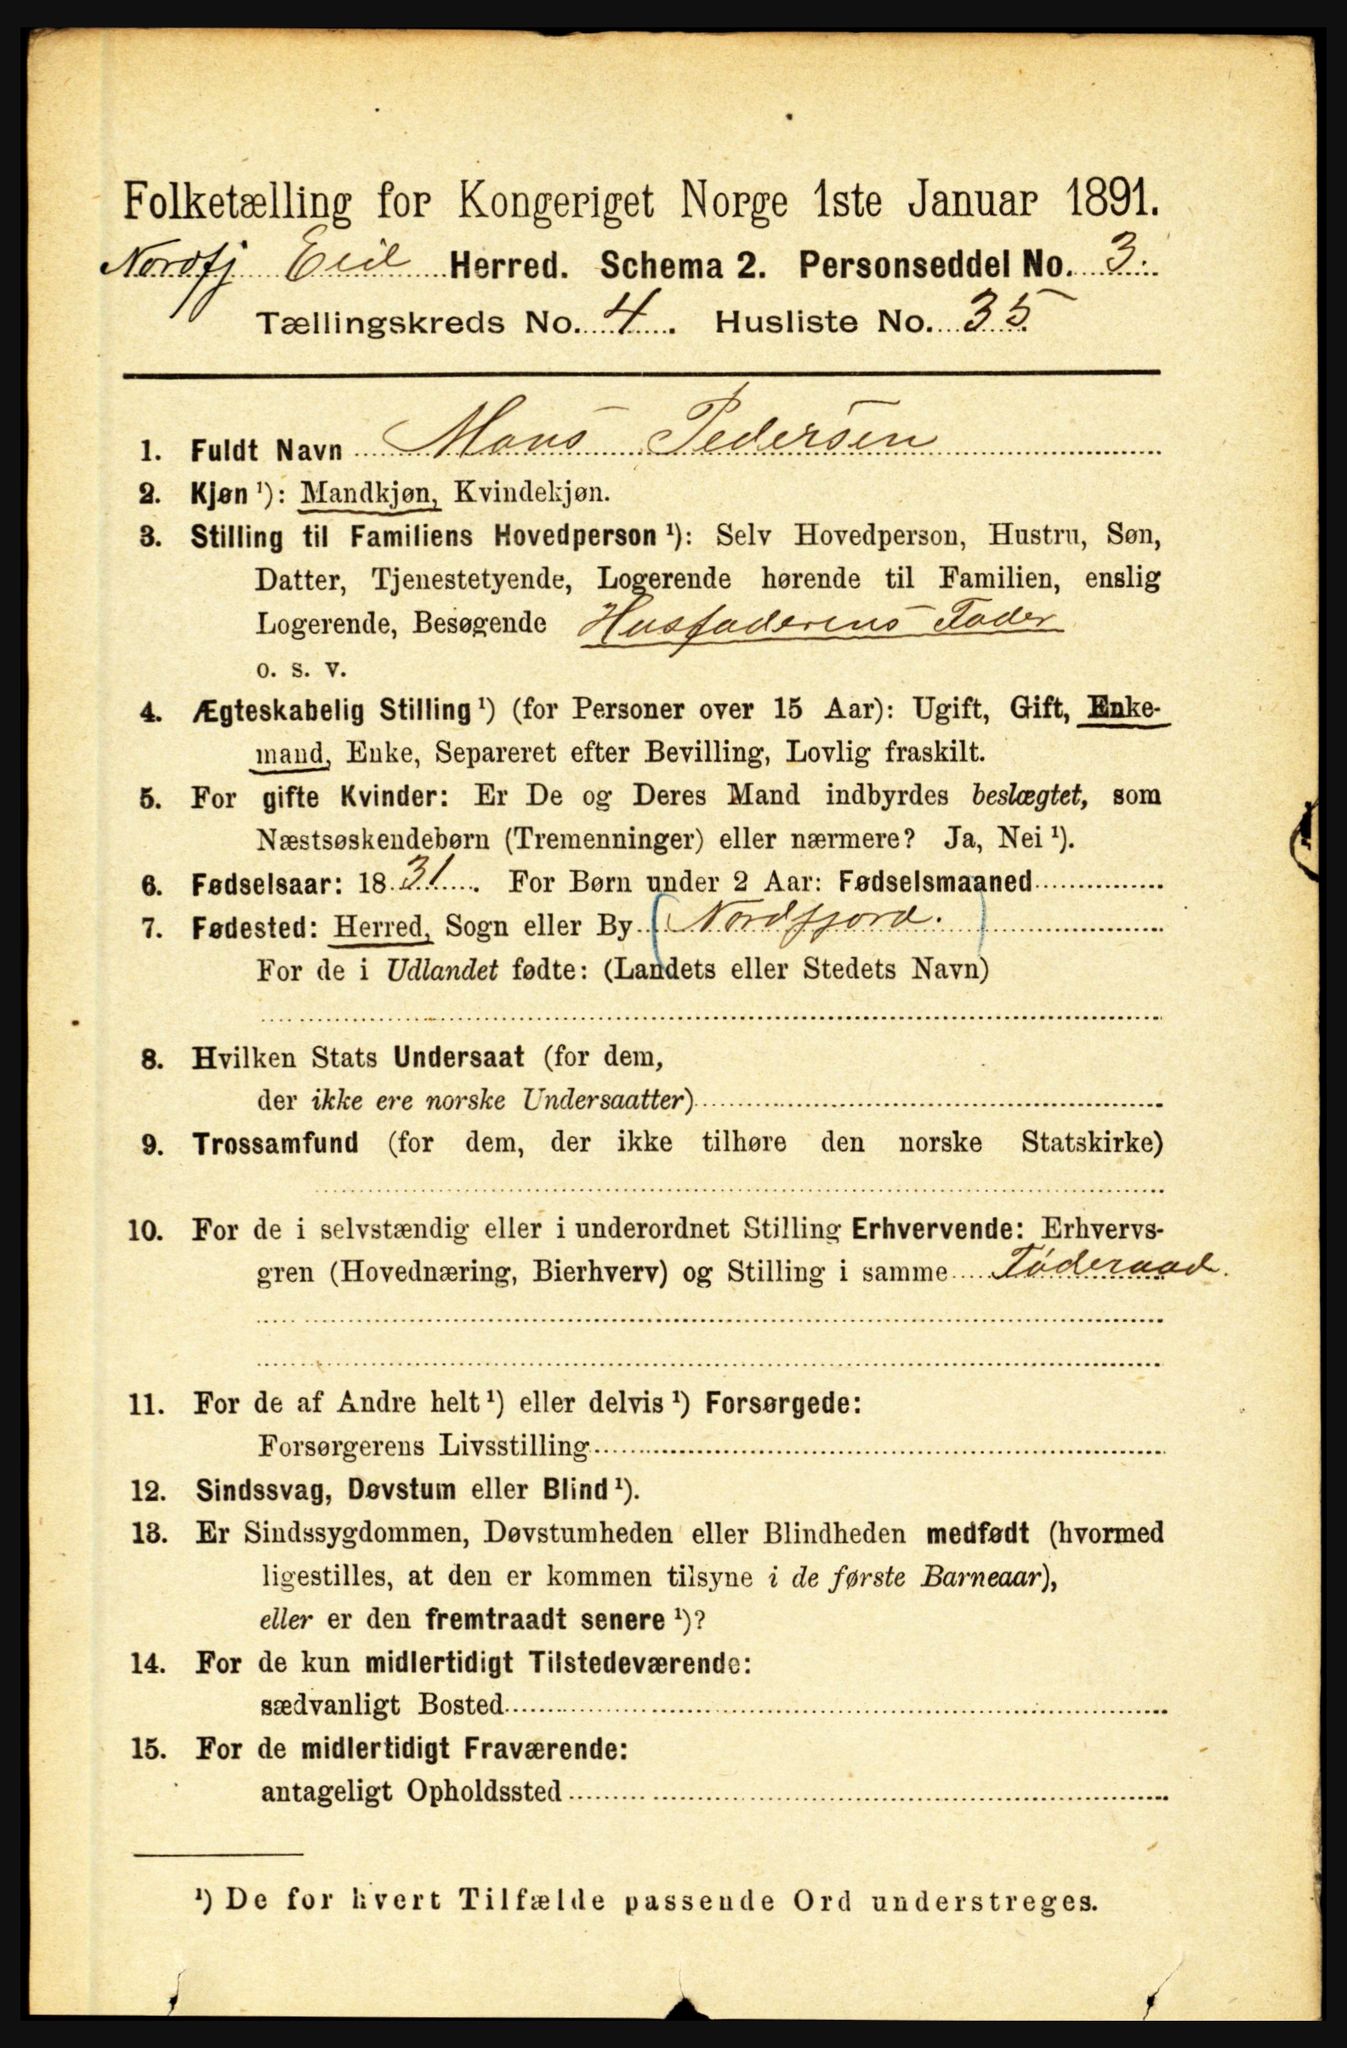 Folketælling for Kongeriget Norge 1ste Januar 1891.
Nordfj Eid Herred. Schema 2. Personseddel No. 3.
Tællingskreds No. 4. Husliste No. 35.
1. Fuldt Navn Mons Pedersen
2. Kjøn ¹): Mandkjøn, Kvindekjøn.
3. Stilling til Familiens Hovedperson ¹): Selv Hovedperson, Hustru, Søn,
Datter, Tjenestetyende, Logerende hørende til Familien, enslig
Logerende, Besøgende Husfaderens Fader
o. s. v.
4. Ægteskabelig Stilling ¹) (for Personer over 15 Aar): Ugift, Gift, Enke-
mand, Enke, Separeret efter Bevilling, Lovlig fraskilt.
5. For gifte Kvinder: Er De og Deres Mand indbyrdes beslægtet, som
Næstsøskendebørn (Tremenninger) eller nærmere? Ja, Nei ¹).
6. Fødselsaar: 1831. For Børn under 2 Aar: Fødselsmaaned
7. Fødested: Herred, Sogn eller By (Nordfjord.)
For de i Udlandet fødte: (Landets eller Stedets Navn)
8. Hvilken Stats Undersaat (for dem,
der ikke ere norske Undersaatter)
9. Trossamfund (for dem, der ikke tilhøre den norske Statskirke)
10. For de i selvstændig eller i underordnet Stilling Erhvervende: Erhvervs-
gren (Hovednæring, Bierhverv) og Stilling i samme Føderaad.
11. For de af Andre helt ¹) eller delvis ¹) Forsørgede:
Forsørgerens Livsstilling
12. Sindssvag, Døvstum eller Blind ¹).
13. Er Sindssygdommen, Døvstumheden eller Blindheden medfødt (hvormed
ligestilles, at den er kommen tilsyne i de første Barneaar),
eller er den fremtraadt senere ¹)?
14. For de kun midlertidigt Tilstedeværende:
sædvanligt Bosted
15. For de midlertidigt Fraværende:
antageligt Opholdssted
¹) De for hvert Tilfælde passende Ord understreges.